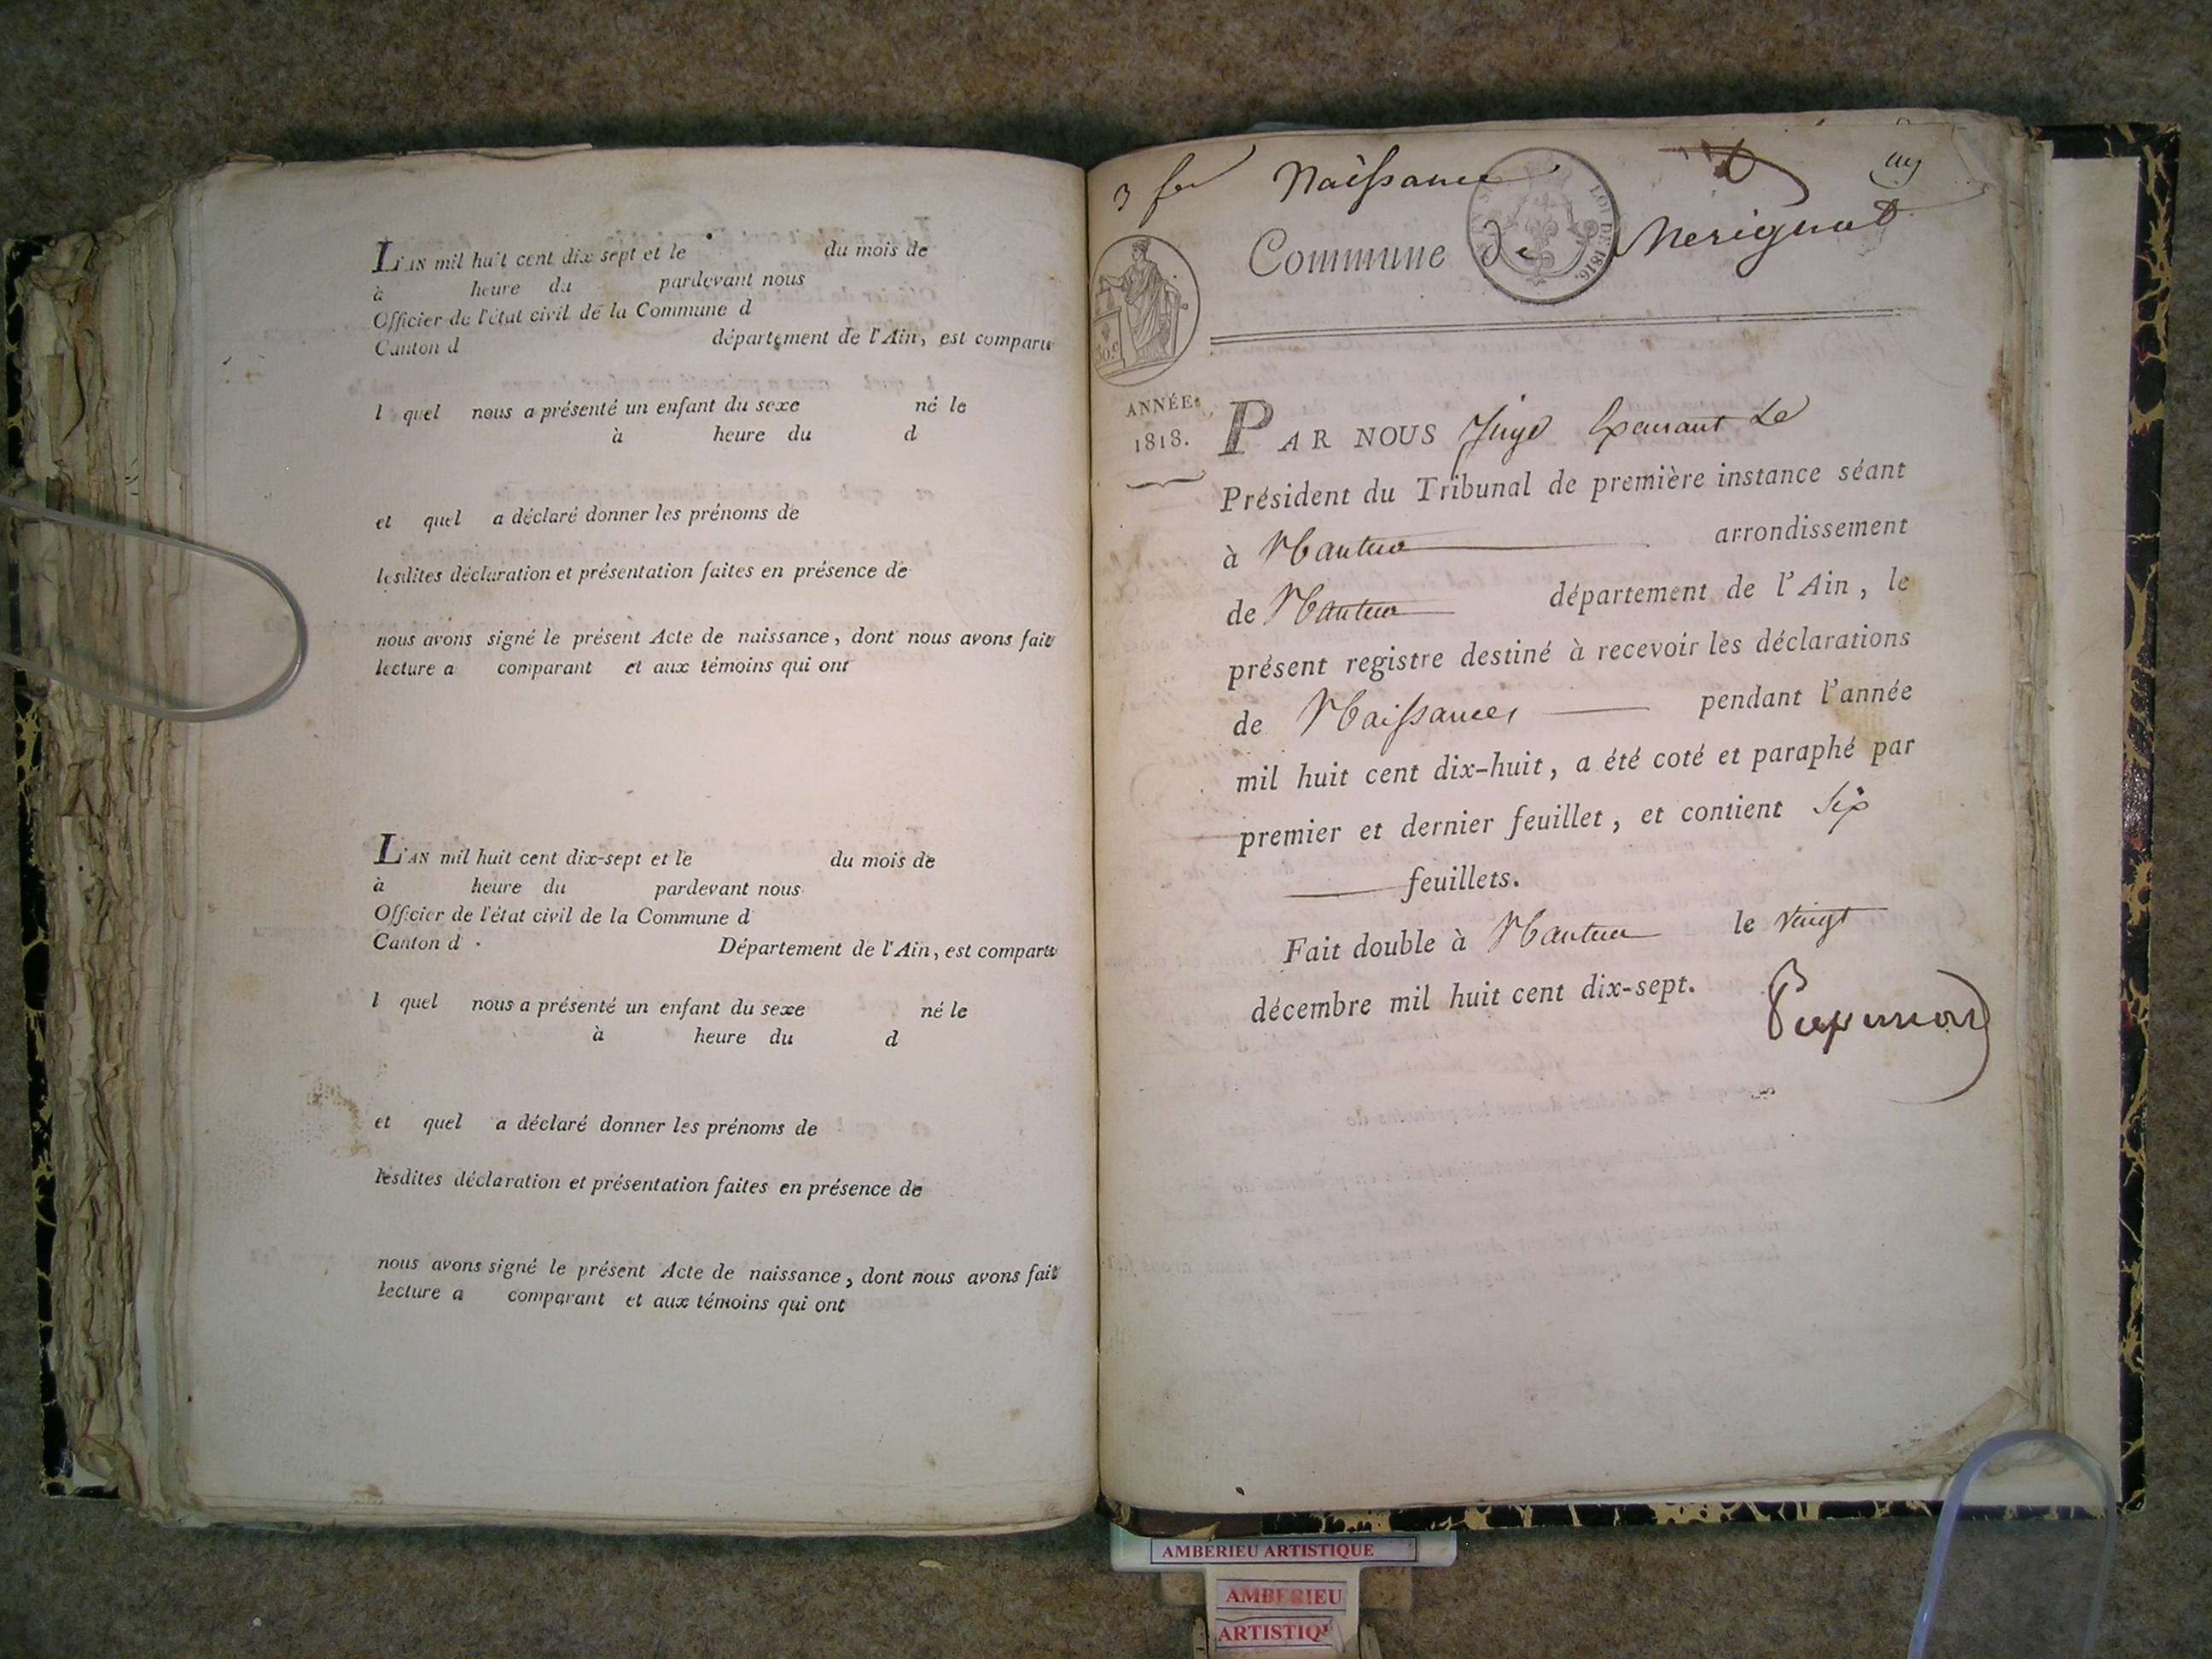 L'AN mil huit cent dix sept et le du mois de
à heure du pardevant nous
Officier de l'état civil de la Commune d
Canton d département de l'Ain, est comparu
l quel nous a présenté un enfant du sexe né le
à heure du d
et quel a déclaré donner les prénoms de
lesdites déclaration et présentation faites en présence de
nous avons signé le présent Acte de naissance, dont nous avons fait
lecture a comparant et aux témoins qui ont
L'AN mil huit cent dix-sept et le du mois de
à heure du pardevant nous
Officier de l'état civil de la Commune d
Canton d Département de l'Ain, est comparu
l quel nous a présenté un enfant du sexe né le
à heure du d
et quel a déclaré donner les prénoms de
lesdites déclaration et présentation faites en présence de
nous avons signé le présent Acte de naissance, dont nous avons fait
lecture a comparant et aux témoins qui ont
Naissance
Commune de Merignat
LOI DE 1816.
ANNÉE
1818.
PAR NOUS Juge le
Président du Tribunal de première instance séant
à Nantua arrondissement
de Nantua département de l'Ain, le
présent registre destiné à recevoir les déclarations
de Naissances pendant l'année
mil huit cent dix-huit, a été coté et paraphé par
premier et dernier feuillet, et contient Six
feuillets.
Fait double à Nantua le vingt
décembre mil huit cent dix-sept.
AMBERIEU ARTISTIQUE
AMBERIEU
ARTISTIQU